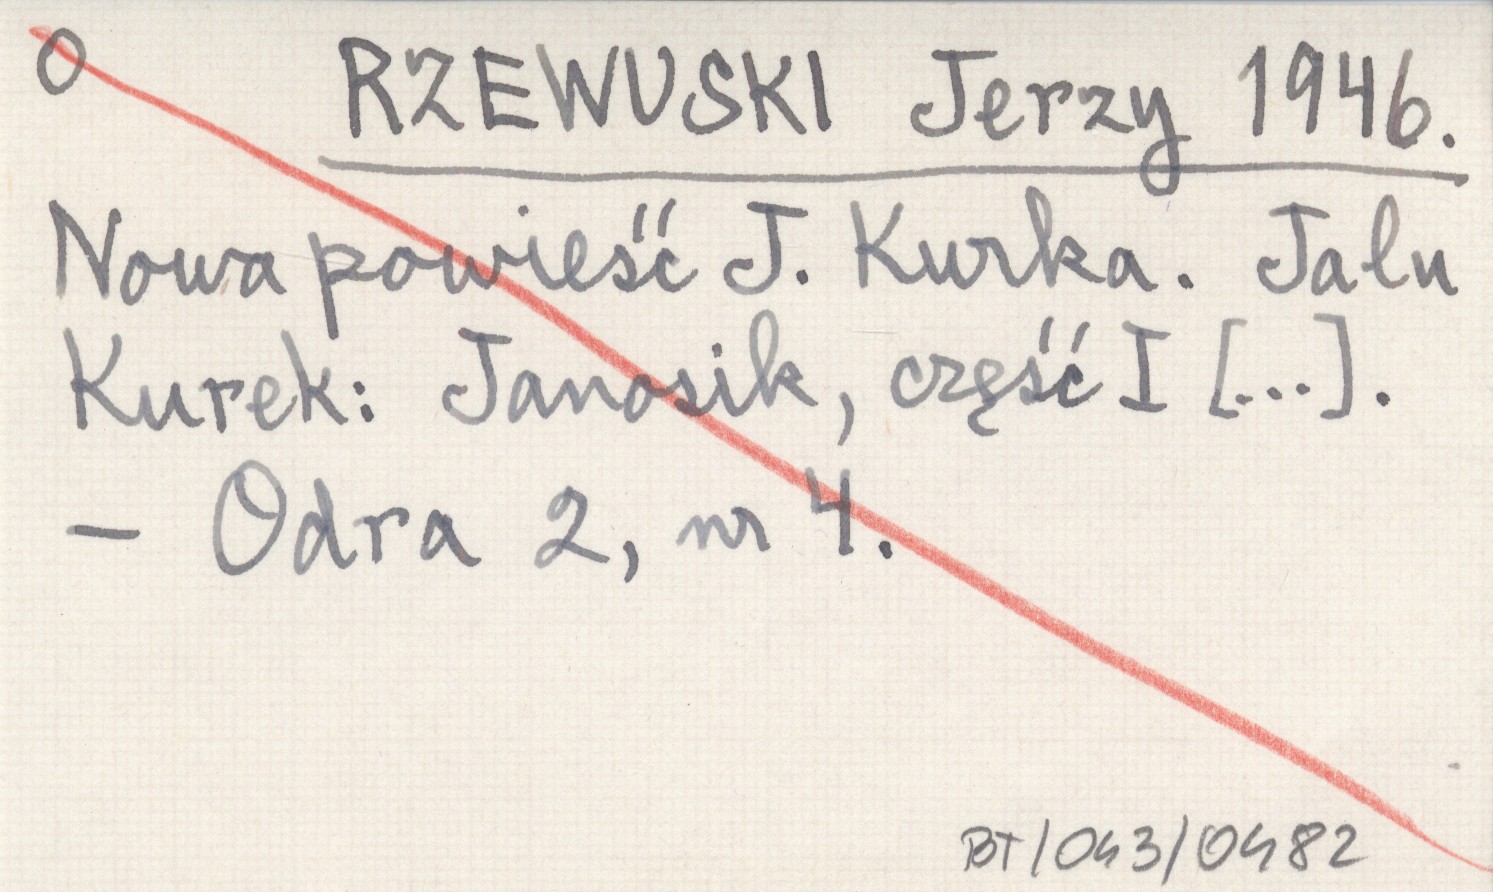 O RZEWUSKI Jerzy 1946.
Nowa powieść J. Kurka. Jalu
Kurek: Janosik, część I [...].
– Odra 2, nr 4.
BT/043/0482